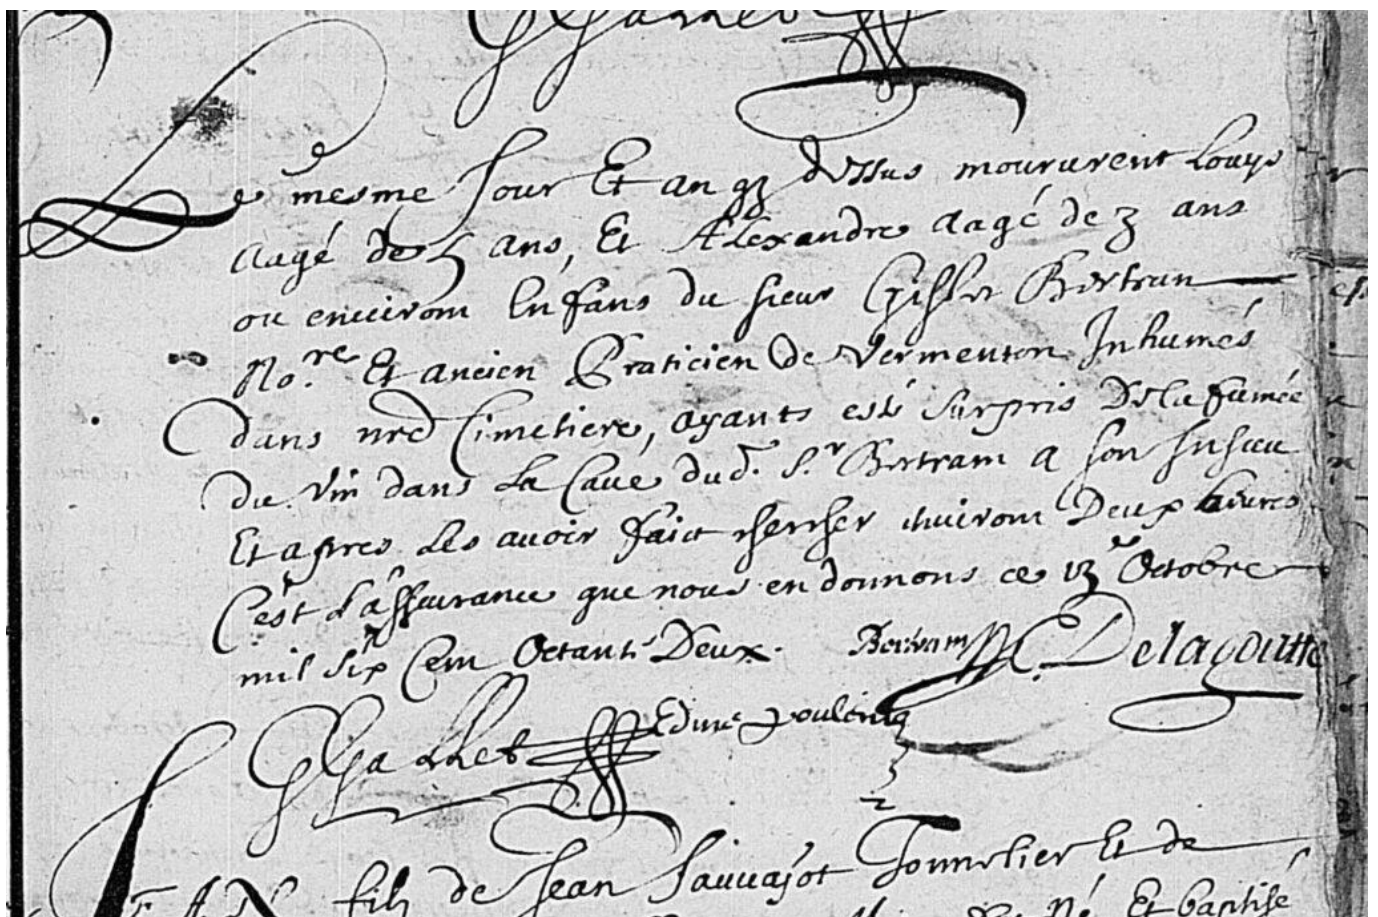 Le mesme Jour Et an q3 dessus moururent Louys
aagé de 5 ans, Et Alexandre aagé de 3 ans
ou enuirom Enfans du sieur Bertran
No.re Et ancien Praticien de Vermenton Inhumés
dans nre Cimetiere, ayants esté surpris De la fumée
du Vin dans La Caue dud. S.r Bertram a son Insceu
Et apres Les auoir faict chercher enuirom Deux heures
C'est L'asseurance que nous en donnons ce 13e Octobre
mil six Cem Octante Deux. Bertram C. Delagoutte
Edme
fils de Jean Sauuajot Tonnelier Et de
Né, Et baptisé